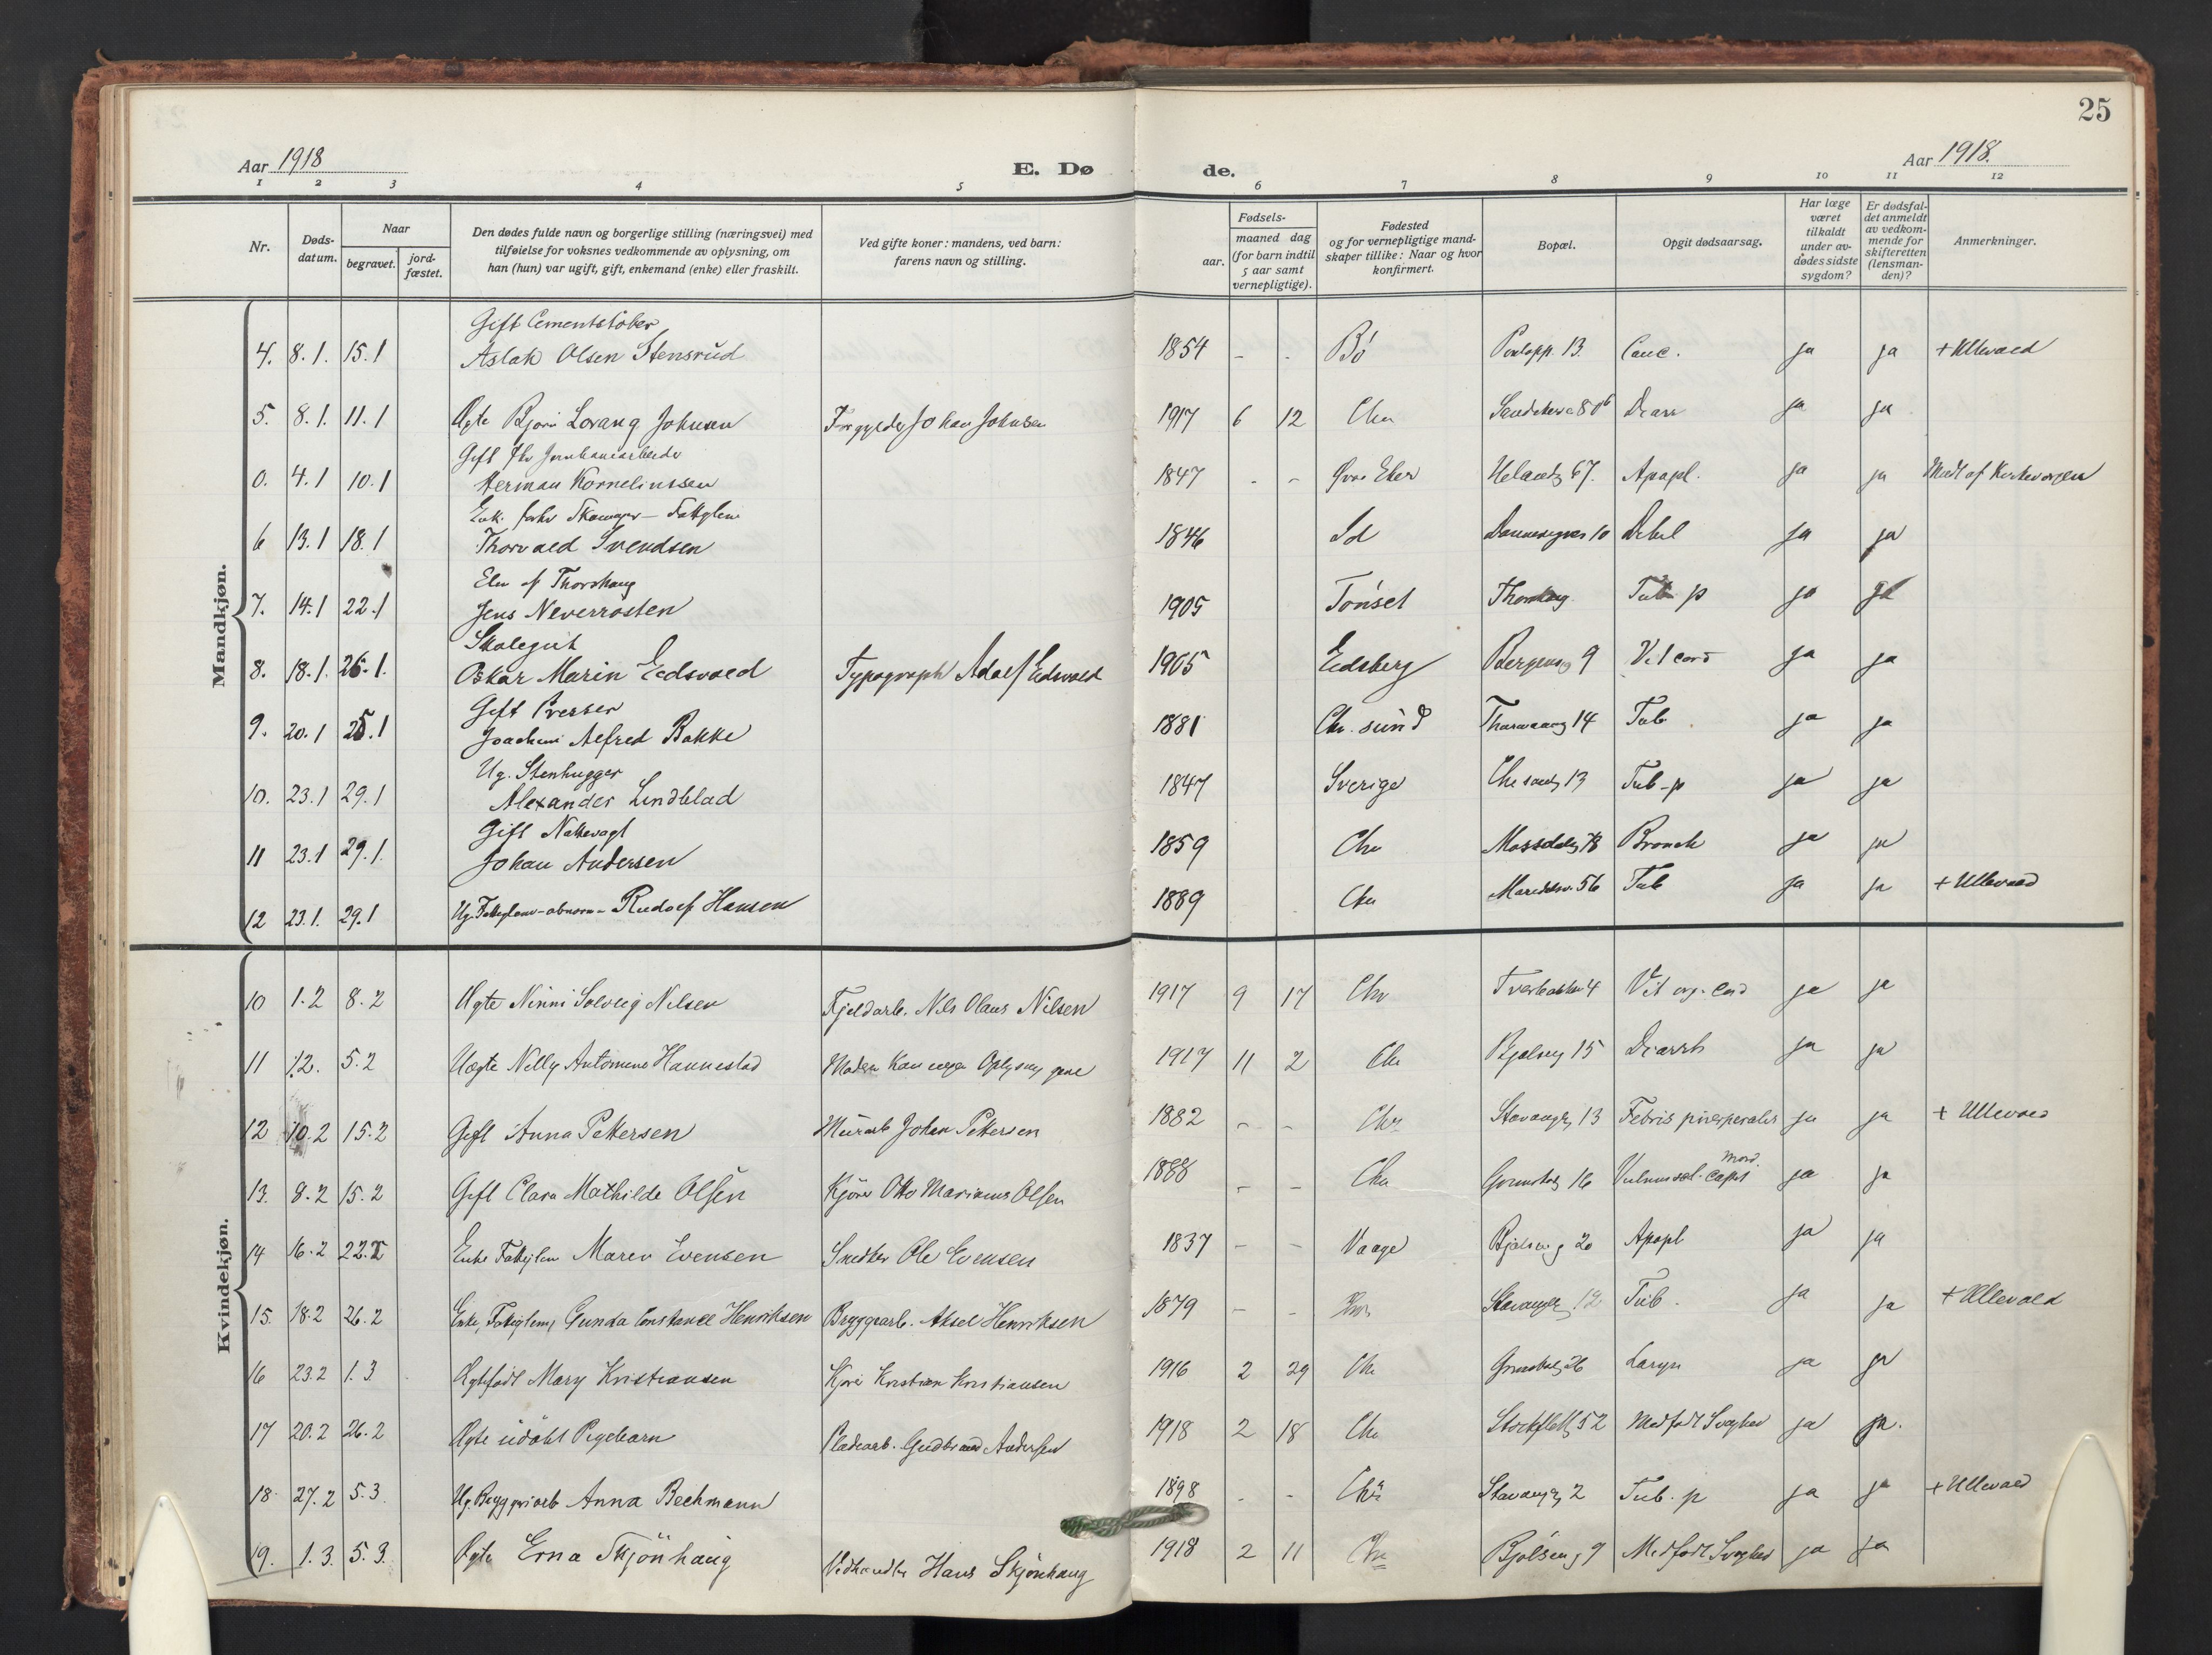 25
Aar 1918
E. Dø de.
Aar 1918.
1 2 3 4 5 6 7 8 9 10 11 12
Nr.
Døds-
datum.
Naar
begravet.
jord-
fæstet.
Den dødes fulde navn og borgerlige stilling (næringsvei) med
tilføielse for voksnes vedkommende av oplysning, om
han (hun) var ugift, gift, enkemand (enke) eller fraskilt.
Ved gifte koner: mandens, ved barn:
farens navn og stilling.
Fødsels-
aar.
maaned dag
(for barn indtil
5 aar samt
vernepligtige).
Fødested
og for vernepligtige mand-
skaper tillike: Naar og hvor
konfirmert.
Bopæl.
Opgit dødsaarsag.
Har læge
været
tilkaldt
under av-
dødes sidste
sygdom?
Er dødsfal-
det anmeldt
av vedkom-
mende for
skifteretten
(lensman-
den)?
Anmerkninger.
Mandkjøn.
Gift Cementstøber
4. 8.1. 15.1 Aslak Olsen Stensrud 1854 - - Bö 13. Canc. ja ja + Ullevaal
5. 8.1. 11.1 Ægte Bjørn Lorang Johnsen Forgylder Johan Johnsen 1917 6 12 Chr ja ja
Gift fhv Jernbanearbeider
0. 4.1 10.1 Herman Kornelinssen 1847 - - Øvre Eker 67. Apopl. ja ja
Enk. forhv Skomager - Fattiglem
6 13.1 18.1 Thorvald Svendsen 1846 Id 10 Debil ja ja
Elev af Thorshaug
7. 14.1 22.1 Jens Neverrosten 1905 Tönset Thorshaug Tub p ja ja
Skolegut
8. 18.1. 26.1. Oskar Marin Eidsvold Typograph Adolf Eidsvold 1905 Eidsberg Bergensg 9 Vit cord ja ja
Gift Presser
9. 20.1 25.1 Joachim Alfred Bakke 1881 Chr. sund 14 Tub. ja ja
Ug. Stenhugger
10. 23.1 29.1 Alexander Lindblad 1847 Sverige 13 Tub-p ja ja
Gift Nattevagt
11 23.1 29.1. Johan Andersen 1859 Chr Bronch ja ja
12 23.1. 29.1 Ug. Fattiglem - abnorm - Rudolf Hansen 1889 Chr Maridalsv. 56 Tub ja ja + Ullevaal
Kvindekjøn.
10 1.2 8.2 Ægte Ninni Solveig Nilsen Fjeldarb. Nils Olaus Nilsen 1917 9 17 Chr Tverbakken 4 Vit org. Cord ja ja
11 1.2. 5.2 Uægte Nelly Antomine Hannestad Moderen Kan ingen Oplysning give 1917 11 2 Chr Bjølseng 15 Diarrh ja ja
12 10.2 15.2 Gift Anna Pettersen Murarb Johan Pettersen 1882 - - Chr Stavangerg 13 Febris puerperalis ja ja + Ullevaal
13. 8.2 15.2 Gift Clara Mathilde Olsen Kjører Otto Marinius Olsen 1888 - - Chr 16 Vulnus scl. capit Mord. ja ja
14 16.2 22.2 Enke Fattiglem Maren Evensen Snedker Ole Evensen 1837 - - Vaage Bjølseng 20 Apopl ja ja
15. 18.2 26.2 Enke, Fattiglem, Gunda Constance Henriksen Bryggearb. Aksel Henriksen 1879 - - Stavangerg 12 Tub. ja ja + Ullevaal
16 23.2 1.3 Ægtefødt Mary Kristiansen Kjører Kristian Kristiansen 1916 2 29 Chr 26 Laryn ja ja
17 20.2 26.2 Ægte udøbt Pigebarn Pladearb. Gudbrand Andersen 1918 2 18 Chr Stockfletsg 52 Medfødt Svaghed ja ja.
18. 27.2 5.3. Ug. Bryggeriarb Anna Bechmann 1898 - - Chr Stavangerg 2 Tub. p ja ja + Ullevaal
19. 1.3. 5.3. Ægte Erna Skjönhaug Vedhandler Hans Skjönhaug 1918 2 11 Chr Bjölseng 9 Medfødt Svaghed ja ja